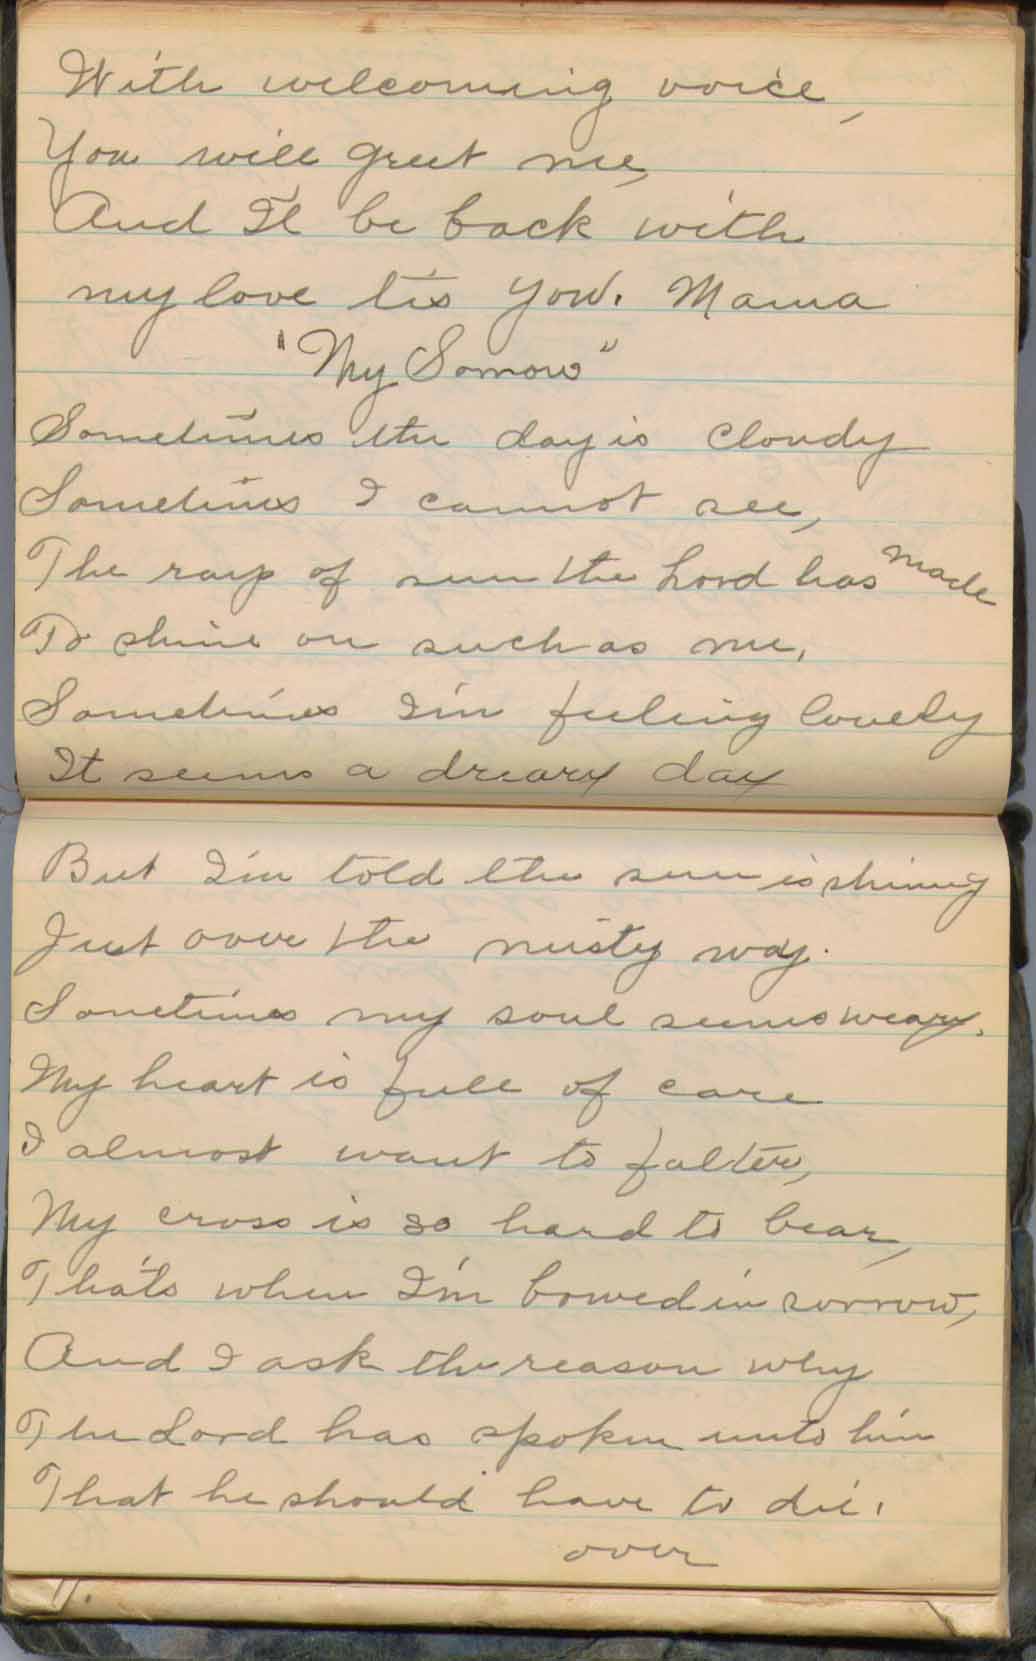 With welcoming voice,
You will greet me,
And I'll be back with
my love tis you. Mama
"My Sorrow"
Sometimes the day is cloudy
Sometimes I cannot see,
The rays of sun the Lord has made
To shine on such as me.
Sometimes I'm feeling lonely
It seems a dreary day
But I'm told the sun is shining
Just over the misty way.
Sometimes my soul seems weary.
My heart is full of care
I almost want to falter,
My cross is so hard to bear,
That's when I'm bowed in sorrow,
And I ask the reason why
The Lord has spoken unto him
That he should have to die.
over